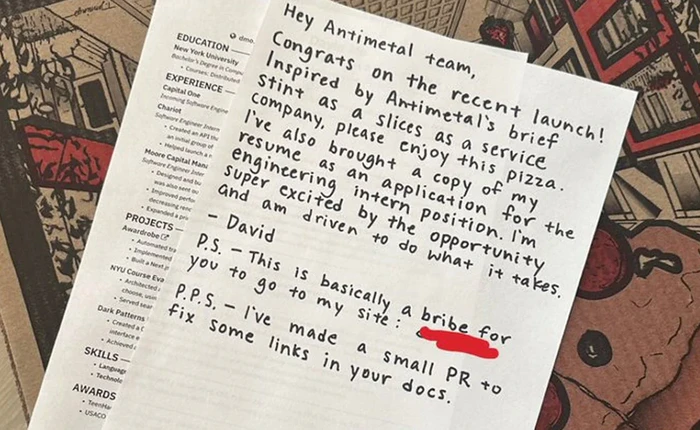 EDUCATION
New York University
Bachelor's Degree in
• Courses: Distributed
EXPERIENCE
Capital One
Incoming Software Engine
Chariot
Software Engineer Intern
• Created an API
an initial group of
• Helped launch a
Moore Capital
Software Engineer
• Designed and
was also sent
• Improved
decreasing
• Expanded a
PROJECTS
Awardrobe
• Automated
• Implemented
• Built a Next
NYU Course
• Architected
choose,
• Served
Dark Patterns
• Created a
interface
• Achieved
SKILLS
• Language
• Technolo
AWARDS
• USACO
Hey Antimetal team,
Congrats on the recent launch!
Inspired by Antimetal's brief
stint as a slices as a service
company, please enjoy this pizza.
I've also brought a copy of my
resume as an application for the
engineering intern position. I'm
super excited by the opportunity
and am driven to do what it takes.
- David
P.S. - This is basically a bribe for
you to go to my site:
P.P.S. - I've made a small PR to
fix some links in your docs.